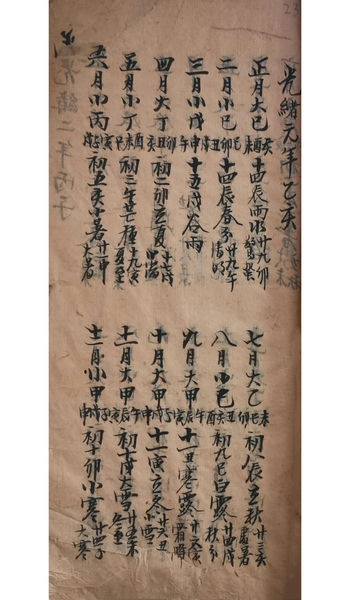 光緒元年乙亥
正月大己亥酉未十四辰雨水廿九卯驚蟄
二月小己巳卯丑十四辰春分廿九午清明
三月小戊戌申午十五戌谷雨
四月大丁卯丑亥初二卯立夏十七戌小滿
五月小丁酉未巳初三午芒種十九寅夏至
六月小丙寅子戌初五亥小暑廿一申大暑
七月大乙未巳卯初八辰立秋廿三亥處暑
八月小乙丑亥酉初九巳白露廿四戌秋分
九月大甲午辰寅十一丑寒露廿六寅霜降
十月大甲子戌申十一寅立冬廿六丑小雪
十一月大甲午辰寅初十戌大雪廿五未冬至
十二月小甲子戌申初十卯小寒廿四子大寒
光緒二年丙子